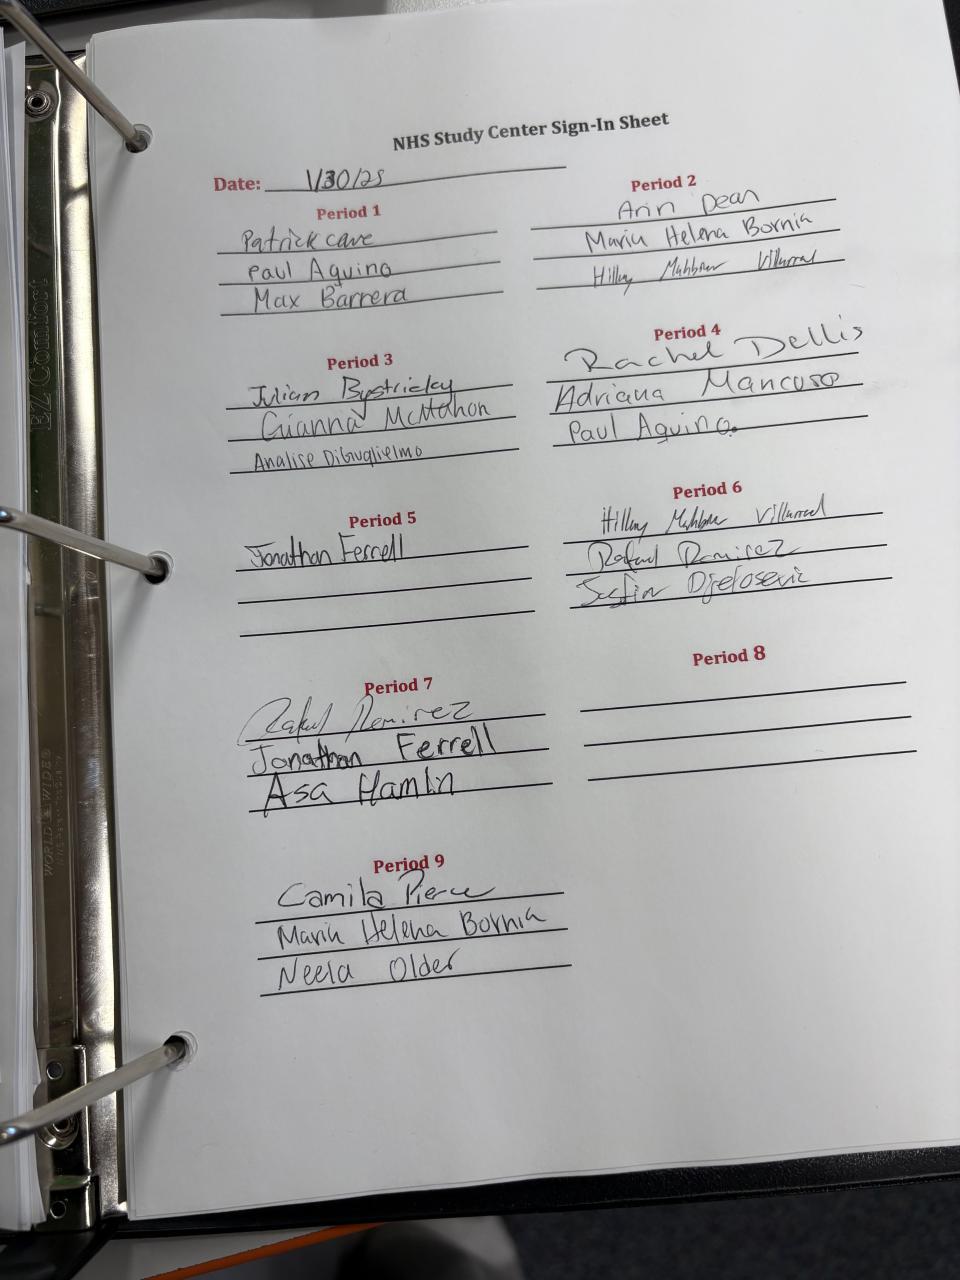 NHS Study Center Sign-In Sheet
Date: 1/30/25
Period 1
Patrick cave
Paul Aquino
Max Barrera
Period 2
Arin Dean
Maria Helena Bornia
Hillary Villarreal
Period 3
Julian Bystricky
Gianna McMahon
Analise DiGuglielmo
Period 4
Rachel Dellis
Adriana Mancuso
Paul Aquino
Period 5
Jonathan Ferrell
Period 6
Hillary Villarreal
Rafael Ramirez
Djelosevic
Period 7
Rafael Ramirez
Jonathan Ferrell
Asa Hamlin
Period 8
Period 9
Camila Pierce
Maria Helena Bornia
Neela Older
EZ Comfort
WORLD WIDE®